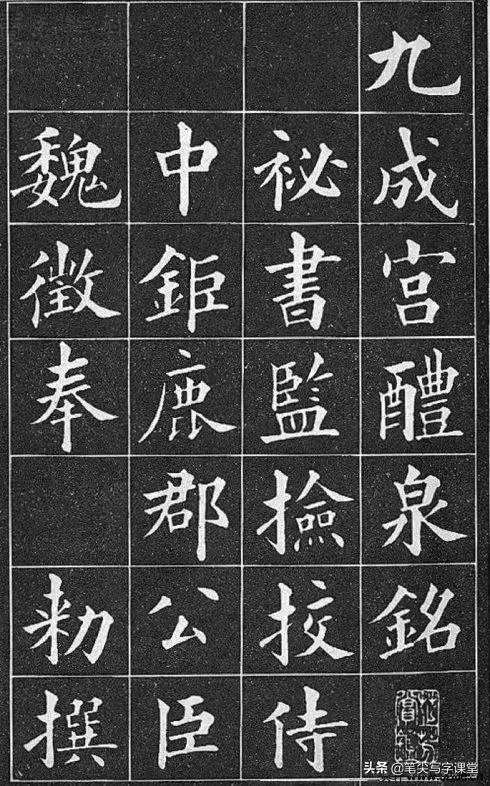 九成宫醴泉銘
祕書監撿挍侍
中鉅鹿郡公臣
魏徵奉勑撰
头条 @笔尖与字课堂